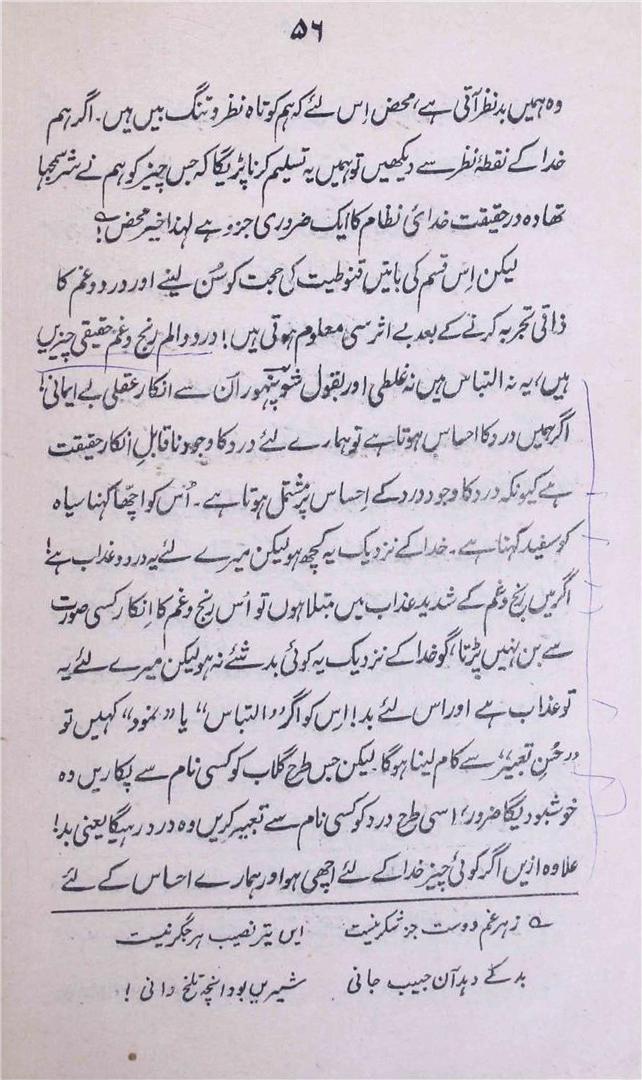 ۵۶
وہ ہمیں بد نظر آتی ہے، محض اِس لئے کہ ہم کوتاہ نظر و تنگ بیں ہیں۔ اگر ہم
خدا کے نقطۂ نظر سے دیکھیں تو ہمیں یہ تسلیم کرنا پڑیگا کہ جس چیز کو ہم نے شر سمجھا
تھا وہ درحقیقت خدائی نظام کا ایک ضروری جزو ہے لہذا خیر محض!؎
لیکن اِس قسم کی باتیں قنوطیت کی حجت کو سُن لینے اور درد و غم کا
ذاتی تجربہ کرنے کے بعد بے اثر سی معلوم ہوتی ہیں! درد و الم رنج و غم حقیقی چیزیں
ہیں، یہ نہ التباس ہیں نہ غلطی اور بقول شوپنہور اَن سے انکار عقلی بے ایمانی!
اگر ہمیں درد کا احساس ہوتا ہے تو ہمارے لئے درد کا وجود ناقابلِ انکار حقیقت
ہے کیونکہ درد کا وجود درد کے اِحساس پر مشتمل ہوتا ہے۔ اُس کو اچھّا کہنا سیاہ
کو سفید کہنا ہے۔ خدا کے نزدیک یہ کچھ ہو لیکن میرے لئے یہ درد و عذاب ہے!
اگر میں رنج و غم کے شدید عذاب میں مبتلا ہوں تو اُس رنج و غم کا اِنکار کسی صورت
سے بن نہیں پڑتا، گو خدا کے نزدیک یہ کوئی بد شئے نہ ہو لیکن میرے لئے یہ
تو عذاب ہے اور اس لئے بد! اِس کو اگر ”التباس“ یا ”نمود“ کہیں تو
”حُسنِ تعبیر“ سے کام لینا ہوگا۔ لیکن جس طرح گلاب کو کسی نام سے پکاریں وہ
خوشبو دیگا ضرور، اسی طرح درد کو کسی نام سے تعبیر کریں وہ درد رہیگا یعنی بد!
علاوہ ازیں اگر کوئی چیز خدا کے لئے اچھی ہو اور ہمارے احساس کے لئے
؎ زہر غم دوست جز شکر نیست ایں تیر نصیب ہر جگر نیست
بد کے دہد آن حبیب جانی شیریں بود انچہ تلخ دانی!